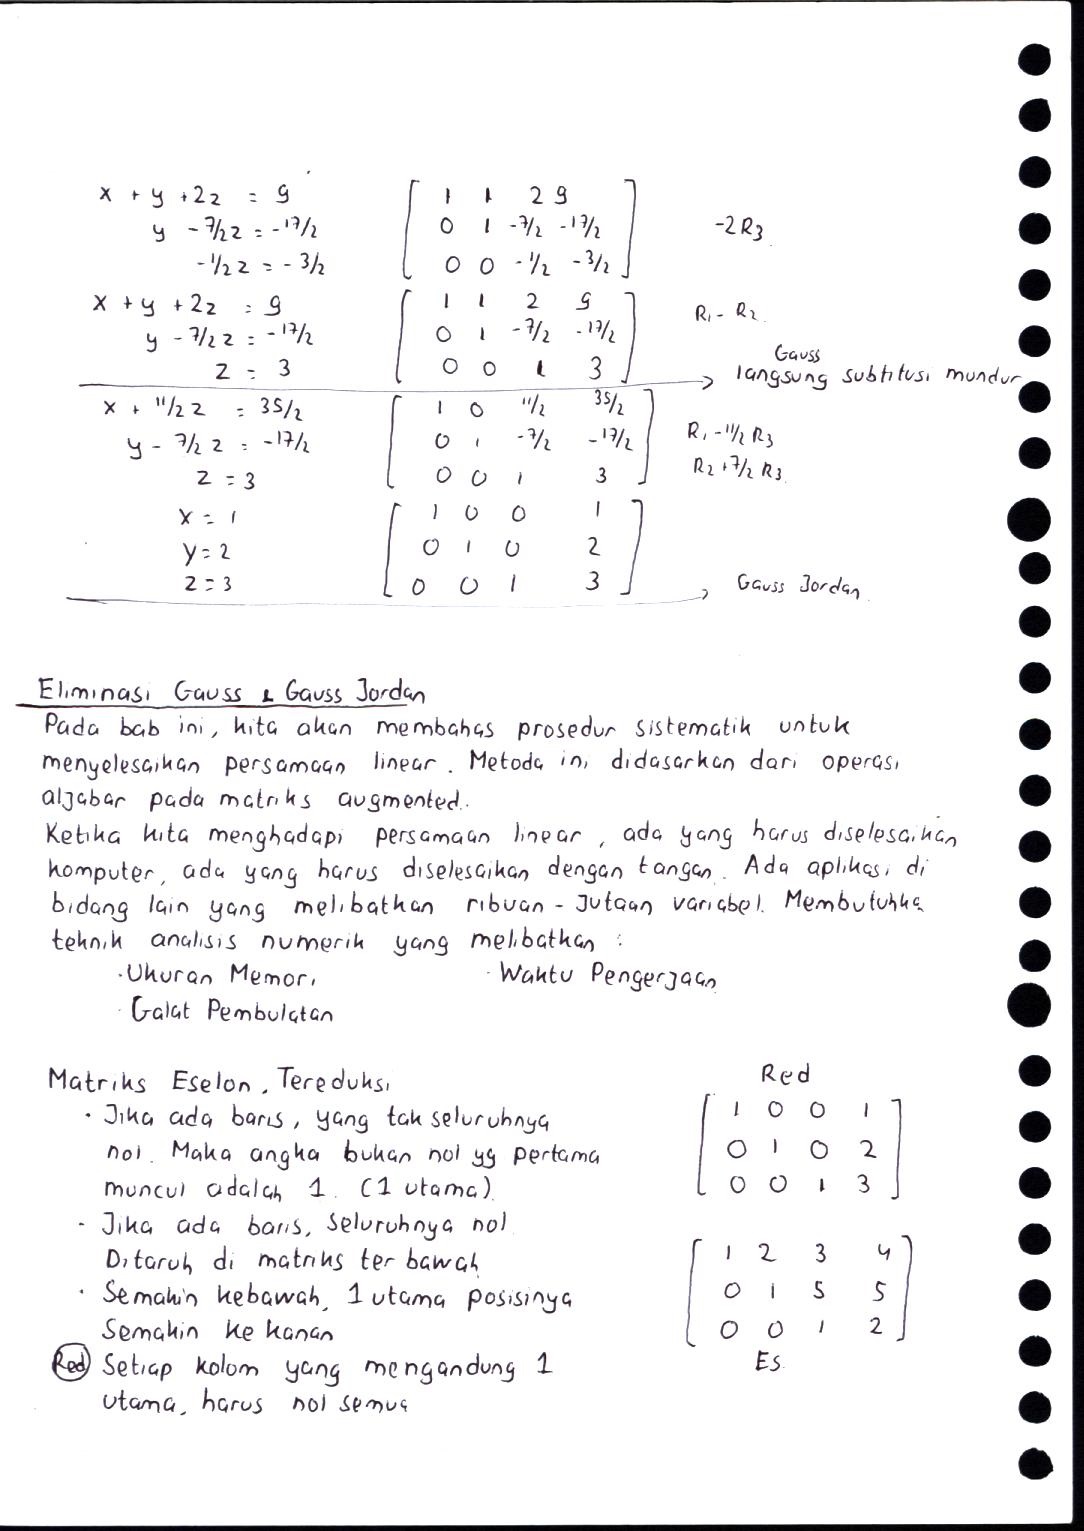 x + y + 2z = 9 [ 1 1 2 9 ]
y - 7/2 z = -17/2 [ 0 1 -7/2 -17/2 ] -2R3
-1/2 z = -3/2 [ 0 0 -1/2 -3/2 ]
x + y + 2z = 9 [ 1 1 2 9 ] R1 - R2
y - 7/2 z = -17/2 [ 0 1 -7/2 -17/2 ]
z = 3 [ 0 0 1 3 ]
Gauss
langsung subtitusi mundur
x + 11/2 z = 35/2 [ 1 0 11/2 35/2 ]
y - 7/2 z = -17/2 [ 0 1 -7/2 -17/2 ] R1 - 11/2 R3
z = 3 [ 0 0 1 3 ] R2 + 7/2 R3
x = 1 [ 1 0 0 1 ]
y = 2 [ 0 1 0 2 ]
z = 3 [ 0 0 1 3 ] Gauss Jordan
Eliminasi Gauss & Gauss Jordan
Pada bab ini, kita akan membahas prosedur sistematik untuk
menyelesaikan persamaan linear. Metoda ini didasarkan dari operasi
aljabar pada matriks augmented.
Ketika kita menghadapi persamaan linear, ada yang harus diselesaikan
komputer, ada yang harus diselesaikan dengan tangan. Ada aplikasi di
bidang lain yang melibatkan ribuan - Jutaan variabel. Membutuhka
teknik analisis numerik yang melibatkan :
· Ukuran Memori · Waktu Pengerjaan
· Galat Pembulatan
Matriks Eselon, Tereduksi
· Jika ada baris, yang tak seluruhnya
nol. Maka angka bukan nol yg pertama
muncul adalah 1. (1 utama)
- Jika ada baris, seluruhnya nol
Ditaruh di matriks ter bawah
· Semakin kebawah, 1 utama posisinya
Semakin ke kanan
Red Setiap kolom yang mengandung 1
utama, harus nol semua
Red
[ 1 0 0 1 ]
[ 0 1 0 2 ]
[ 0 0 1 3 ]
[ 1 2 3 4 ]
[ 0 1 5 5 ]
[ 0 0 1 2 ]
Es.